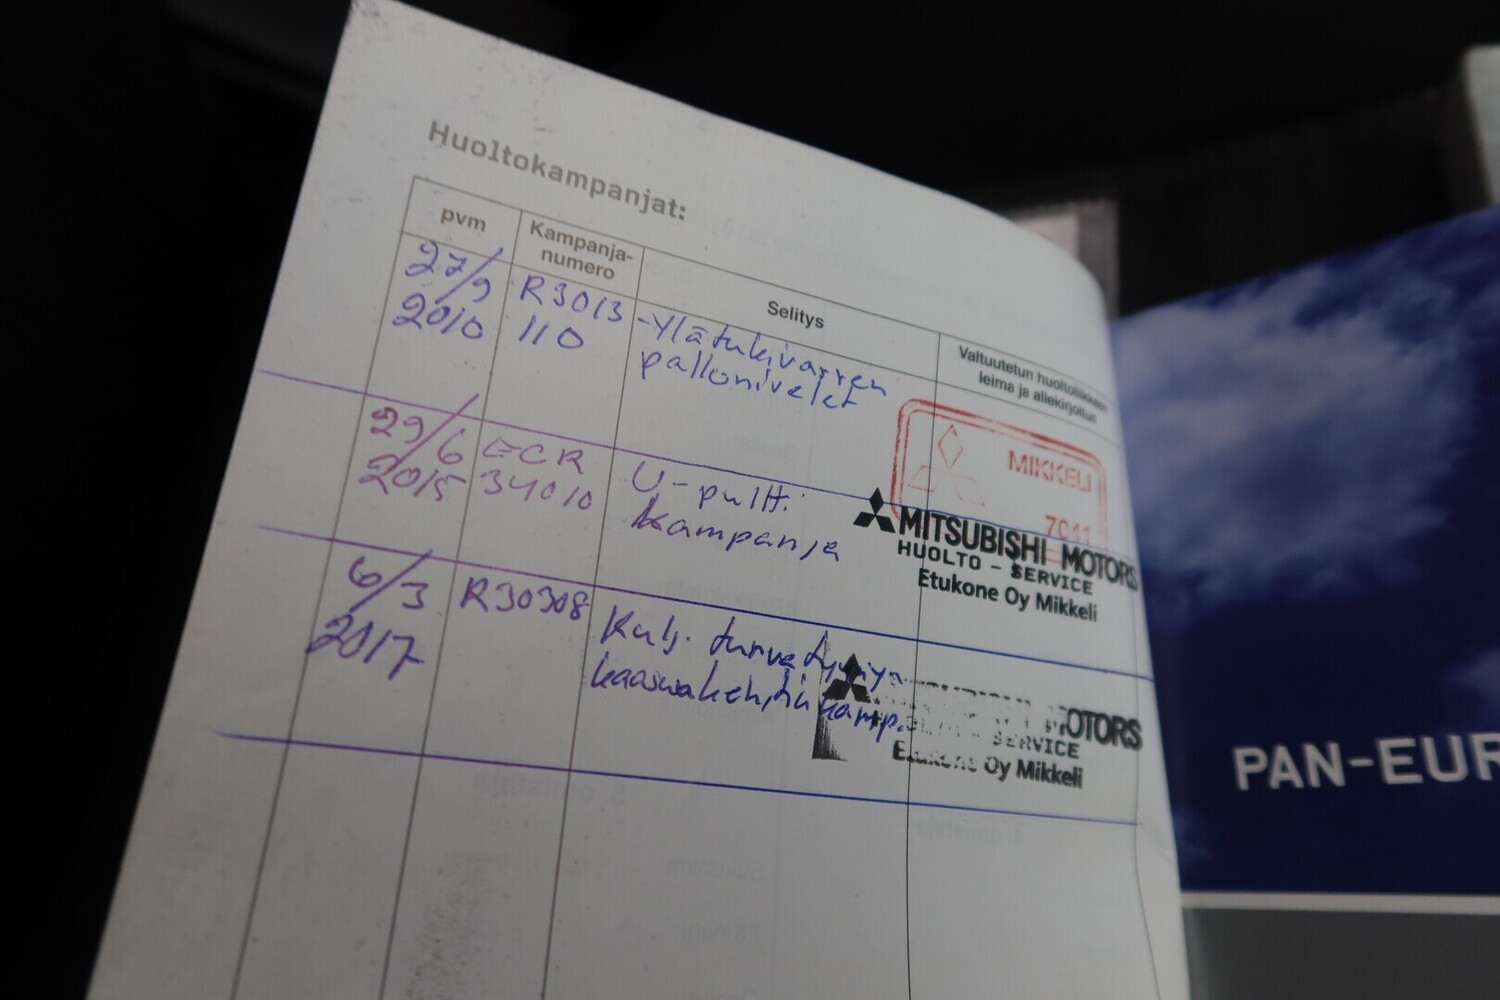 Huoltokampanjat:
pvm
Kampanja-
numero
Selitys
Valtuutetun huoltoliikkeen
leima ja allekirjoitus
27/9
2010
R3013
110
-Ylätukivarren
pallonivelet
MIKKELI
7041
29/6
2015
ECR
34010
U-pultti
kampanja
MITSUBISHI MOTORS
HUOLTO - SERVICE
Etukone Oy Mikkeli
6/3
2017
R30308
Kulj. turvatyynyn
kaasunkehitin kamp.
MOTORS
SERVICE
Etukone Oy Mikkeli
PAN-EUR